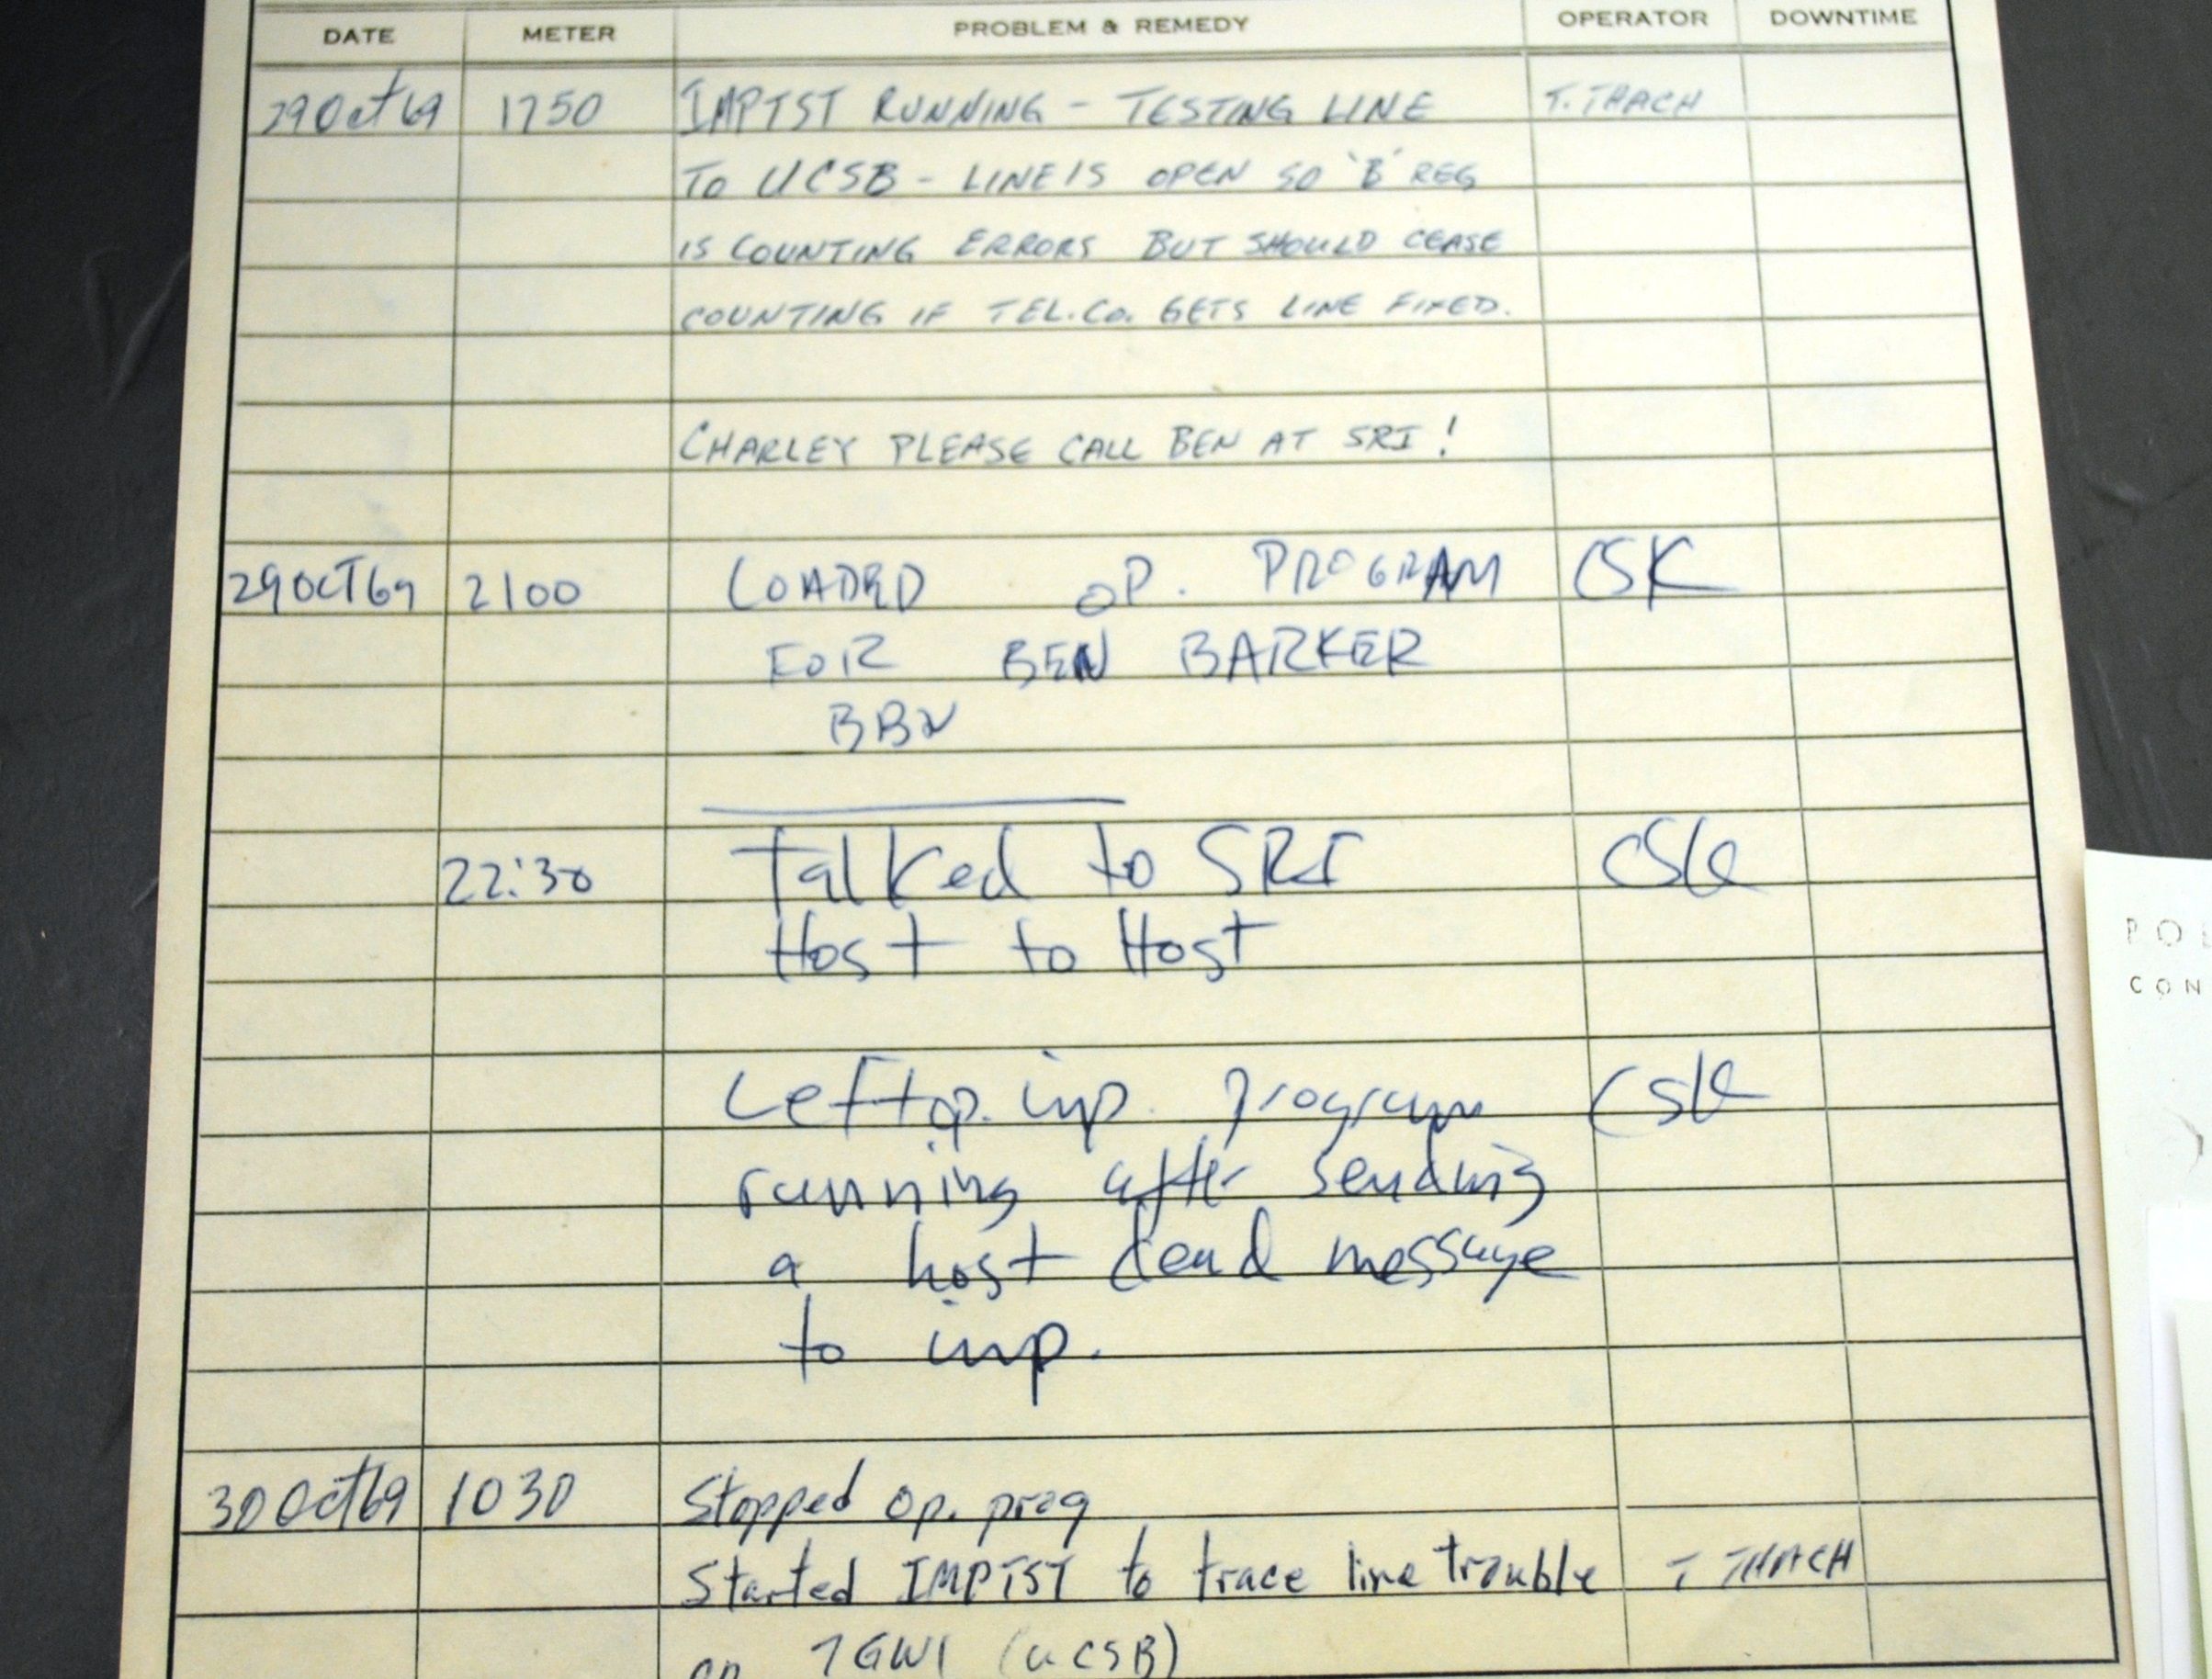 DATE METER PROBLEM & REMEDY OPERATOR DOWNTIME
29Oct69 1750 IMPTST RUNNING - TESTING LINE T. THACH
TO UCSB - LINE IS OPEN SO 'B' REG
IS COUNTING ERRORS BUT SHOULD CEASE
COUNTING IF TEL. Co. GETS LINE FIXED.
CHARLEY PLEASE CALL BEN AT SRI!
29OCT69 2100 LOADED OP. PROGRAM CSK
FOR BEN BARKER
BBN
22:30 Talked to SRI CSK
Host to Host
Left op. imp. program CSK
running after sending
a host dead message
to imp.
30Oct69 1030 Stopped op. prog
Started IMPTST to trace line trouble T THACH
on 7GW1 (UCSB)
CON